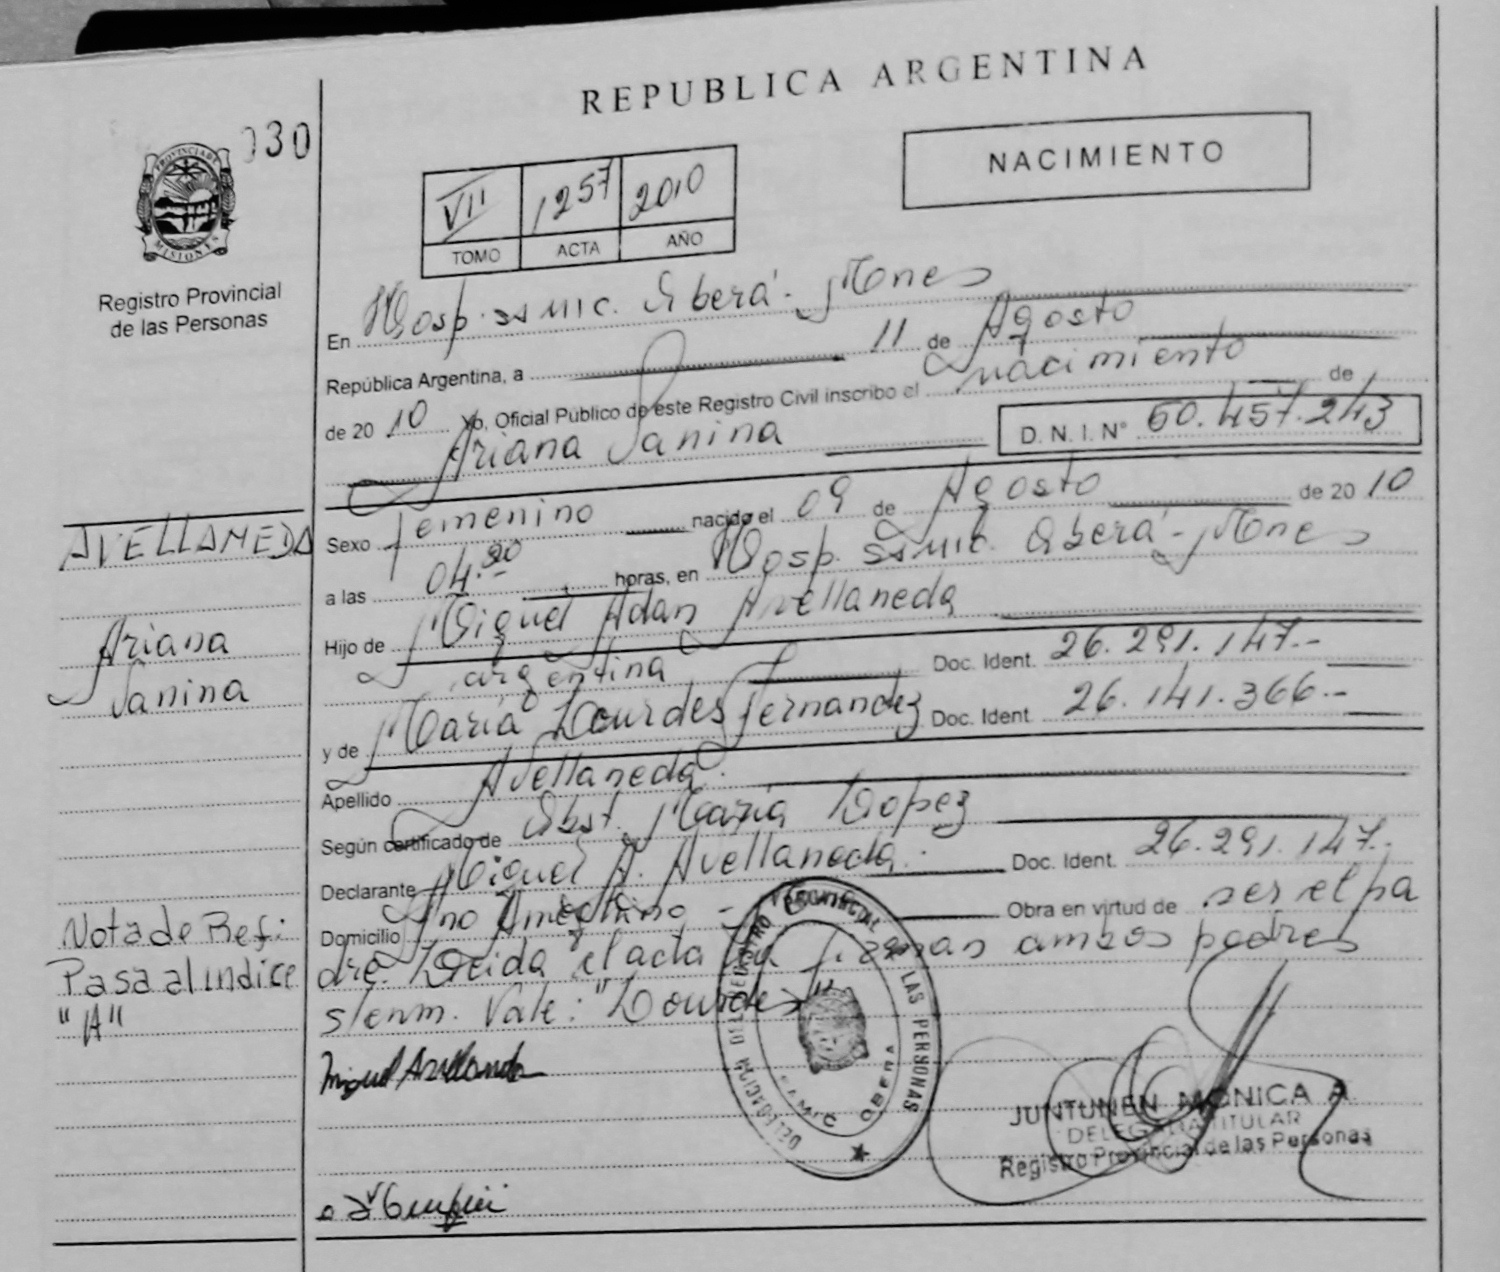 REPUBLICA ARGENTINA
030
PROVINCIA DE
MISIONES
Registro Provincial
de las Personas
NACIMIENTO
VII 1257 2010
TOMO ACTA AÑO
En Hosp. SAMIC. Oberá - Mones
República Argentina, a 11 de Agosto
de 2010 Yo, Oficial Público de este Registro Civil inscribo el nacimiento de
Ariana Janina D.N.I. Nº 50.457.243
AVELLANEDA
Sexo femenino nacido el 09 de Agosto de 2010
a las 04.20 horas, en Hosp. SAMIC. Oberá - Mones
Ariana
Janina
Hijo de Miguel Adan Avellaneda
argentina Doc. Ident. 26.291.147.-
y de María Lourdes Fernandez Doc. Ident 26.141.366.-
Apellido Avellaneda.
Según certificado de Obst. María Lopez
Declarante Miguel A. Avellaneda. Doc. Ident. 26.291.147.-
Domicilio Ameghino - Obra en virtud de ser el pa
dre. Leida el acta la firman ambos padres
s/enm. Vale: "Lourdes"
Nota de Ref:
Pasa al indice
"A"
Miguel Avellaneda
DELEGACION DEL REGISTRO PROVINCIAL DE LAS PERSONAS
SAMIC OBERA
JUNTUNEN MONICA A
DELEGADA TITULAR
Registro Provincial de las Personas